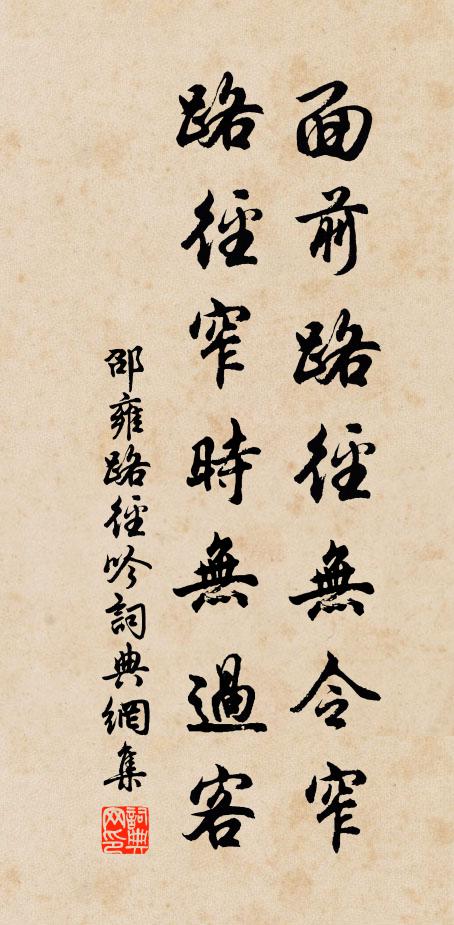 面前路徑無令窄
路徑窄時無過客
邵雍路徑吟詞典網集
詞典網印